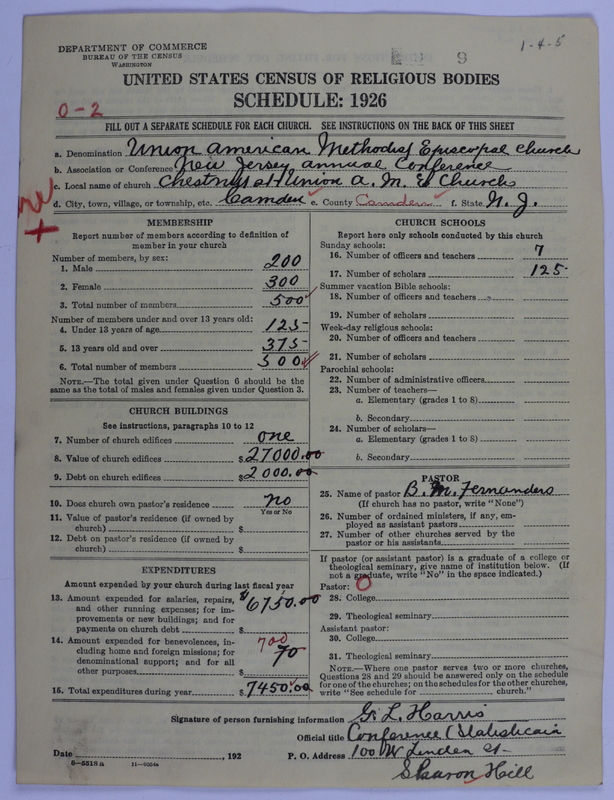 DEPARTMENT OF COMMERCE
BUREAU OF THE CENSUS
WASHINGTON
9
1-4-5
UNITED STATES CENSUS OF RELIGIOUS BODIES
SCHEDULE: 1926
0-2
FILL OUT A SEPARATE SCHEDULE FOR EACH CHURCH. SEE INSTRUCTIONS ON THE BACK OF THIS SHEET
a. Denomination Union American Methodist Episcopal Church
b. Association or Conference New Jersey Annual Conference
c. Local name of church Chestnut St Union A. M. E Church
d. City, town, village, or township, etc. Camden e. County Camden f. State N. J.
MEMBERSHIP
Report number of members according to definition of
member in your church
Number of members, by sex:
1. Male 200
2. Female 300
3. Total number of members 500
Number of members under and over 13 years old:
4. Under 13 years of age 125
5. 13 years old and over 375
6. Total number of members 500
NOTE.—The total given under Question 6 should be
same as the total of males and females given under Question 3.
CHURCH BUILDINGS
See instructions, paragraphs 10 to 12
7. Number of church edifices one
8. Value of church edifices $27000.00
9. Debt on church edifices $2000.00
10. Does church own pastor's residence no
Yes or No
11. Value of pastor's residence (if owned by
church) $
12. Debt on pastor's residence (if owned by
church) $
EXPENDITURES
Amount expended by your church during last fiscal year
13. Amount expended for salaries, repairs,
and other running expenses; for im-
provements or new buildings; and for
payments on church debt $ $6750.00
14. Amount expended for benevolences, in-
cluding home and foreign missions; for
denominational support; and for all
other purposes $ 700 70
15. Total expenditures during year $7450.00
CHURCH SCHOOLS
Report here only schools conducted by this church
Sunday schools:
16. Number of officers and teachers 7
17. Number of scholars 125
Summer vacation Bible schools:
18. Number of officers and teachers
19. Number of scholars
Week-day religious schools:
20. Number of officers and teachers
21. Number of scholars
Parochial schools:
22. Number of administrative officers
23. Number of teachers—
a. Elementary (grades 1 to 8)
b. Secondary
24. Number of scholars—
a. Elementary (grades 1 to 8)
b. Secondary
PASTOR
25. Name of pastor B. M. Fernanders
(If church has no pastor, write "None")
26. Number of ordained ministers, if any, em-
ployed as assistant pastors
27. Number of other churches served by the
pastor or his assistants
If pastor (or assistant pastor) is a graduate of a college or
theological seminary, give name of institution below. (If
not a graduate, write "No" in the space indicated.)
Pastor: 0
28. College
29. Theological seminary
Assistant pastor:
30. College
31. Theological seminary
NOTE.—Where one pastor serves two or more churches,
Questions 28 and 29 should be answered only on the schedule
for one of the churches; on the schedules for the other churches,
write "See schedule for church."
Signature of person furnishing information G. L. Harris
Official title Conference Statishcain
Date , 192 P. O. Address 100 W Linden St
8-5518a 11-9204a
Sharon Hill